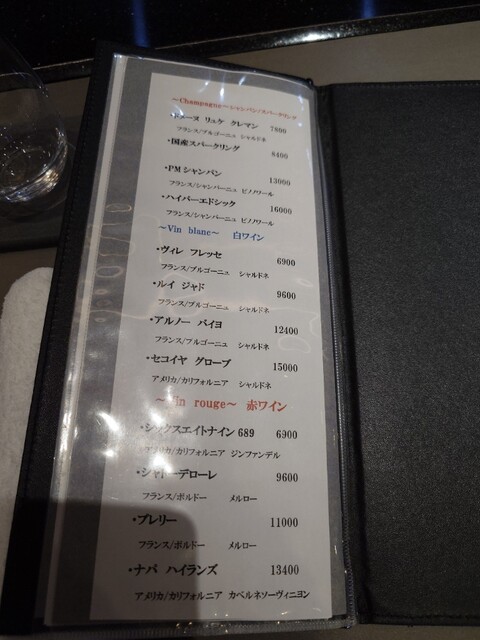 ~Champagne~シャンパン/スパークリング
リュケ クレマン 7800
フランス/ブルゴーニュ シャルドネ
・国産スパークリング 8400
・PMシャンパン 13000
フランス/シャンパーニュ ピノノワール
・ハイパーエドシック 16000
フランス/シャンパーニュ ピノノワール
~Vin blanc~ 白ワイン
・ヴィレ フレッセ 6900
フランス/ブルゴーニュ シャルドネ
・ルイ ジャド 9600
フランス/ブルゴーニュ シャルドネ
・アルノー バイヨ 12400
フランス/ブルゴーニュ シャルドネ
・セコイヤ グローブ 15000
アメリカ/カリフォルニア シャルドネ
~Vin rouge~ 赤ワイン
・シックスエイトナイン 689 6900
アメリカ/カリフォルニア ジンファンデル
・シャトーデローレ 9600
フランス/ボルドー メルロー
・ブレリー 11000
フランス/ボルドー メルロー
・ナパ ハイランズ 13400
アメリカ/カリフォルニア カベルネソーヴィニヨン